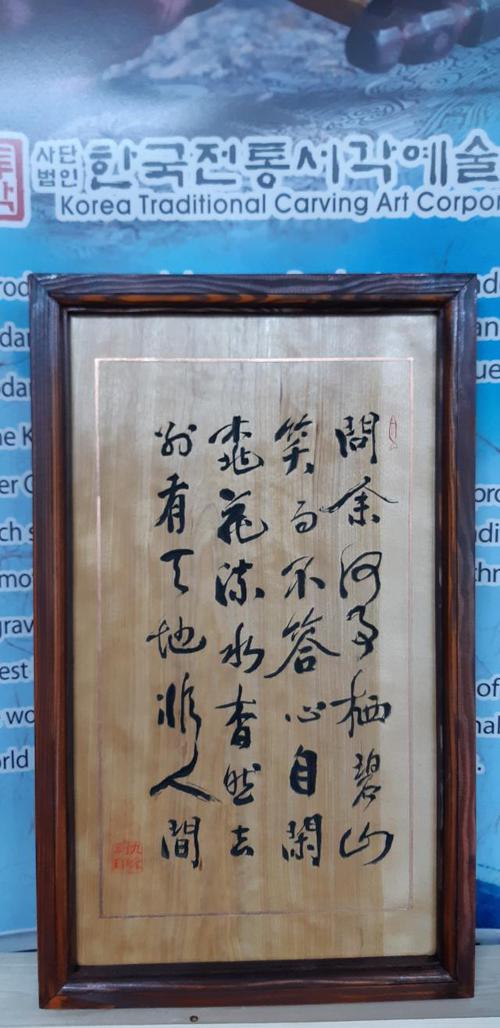 사단
법인 한국전통서각예술
Korea Traditional Carving Art Corpor
問余何事栖碧山
笑而不答心自閑
桃花流水杳然去
別有天地非人間